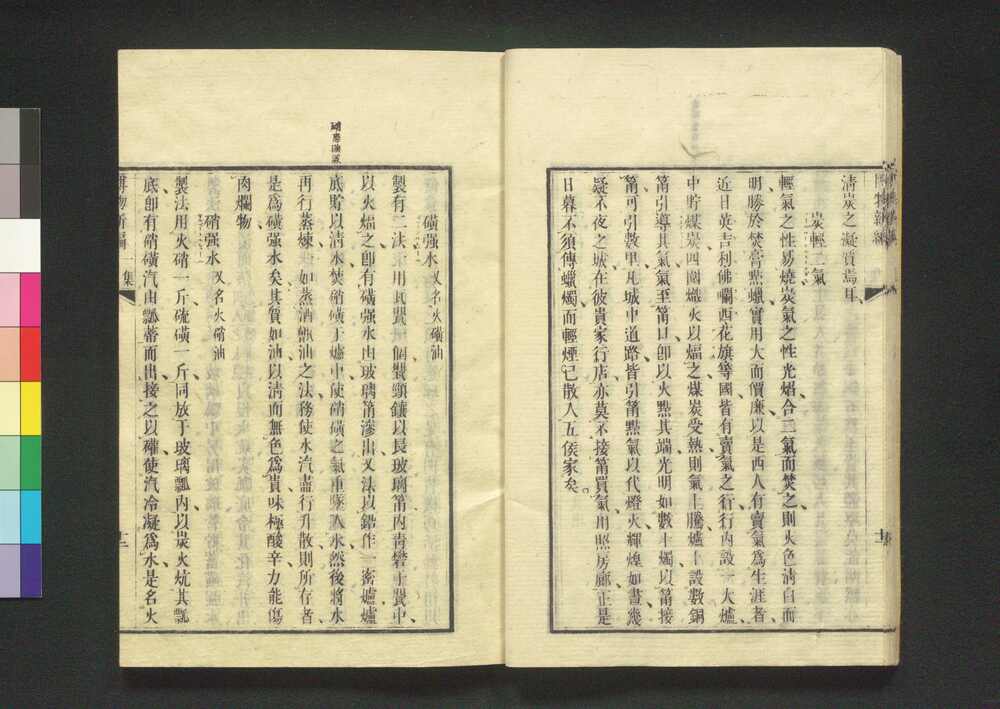 清炭之凝質焉耳
炭輕二氣
輕氣之性易燒炭氣之性光熖合二氣而焚之則火色清白而
明勝於焚膏㸃蠟實用大而價廉以是西人有賣氣爲生涯者
近日英吉利佛囒西花旗等國皆有賣氣之行行內設一大爐
中貯煤炭四圍熾火以煏之煤炭受熱則氣上騰爐上設數銅
筩引導其氣氣至筩口卽以火㸃其端光明如數十燭以筩接
筩可引數里凡城中道路皆引筩㸃氣以代燈火輝煌如晝幾
疑不夜之城在彼貴家行店亦莫不接筩買氣用照房廊正是
日暮不須傳蠟燭而輕煙已散入五侯家矣
磺强水 又名火磺油
製有二法 用瓦 個 頸鑲以長玻璃筩內 中
以火煏之卽有磺强水由玻璃筩滲出又法以鉛作一密爐爐
底貯以清水焚硝磺于爐中使硝磺之氣重墜入水然後將水
再行蒸煉 如蒸酒 油之法務使水汽盡行升散則所存者
是爲磺强水矣其質如油以清而無色爲貴味極酸辛力能傷
肉爛物
硝强水 又名火硝油
製法用火硝一斤硫磺一斤同放于玻璃瓢內以炭火炕其瓢
底卽有硝磺汽由瓢蒂而出接之以礶使汽冷凝爲水是名火
博物新編 一集
十二